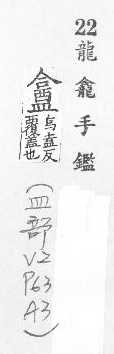 22 龍龕手鑑
烏盍反
覆蓋也
(皿部 V2 P63 A3)